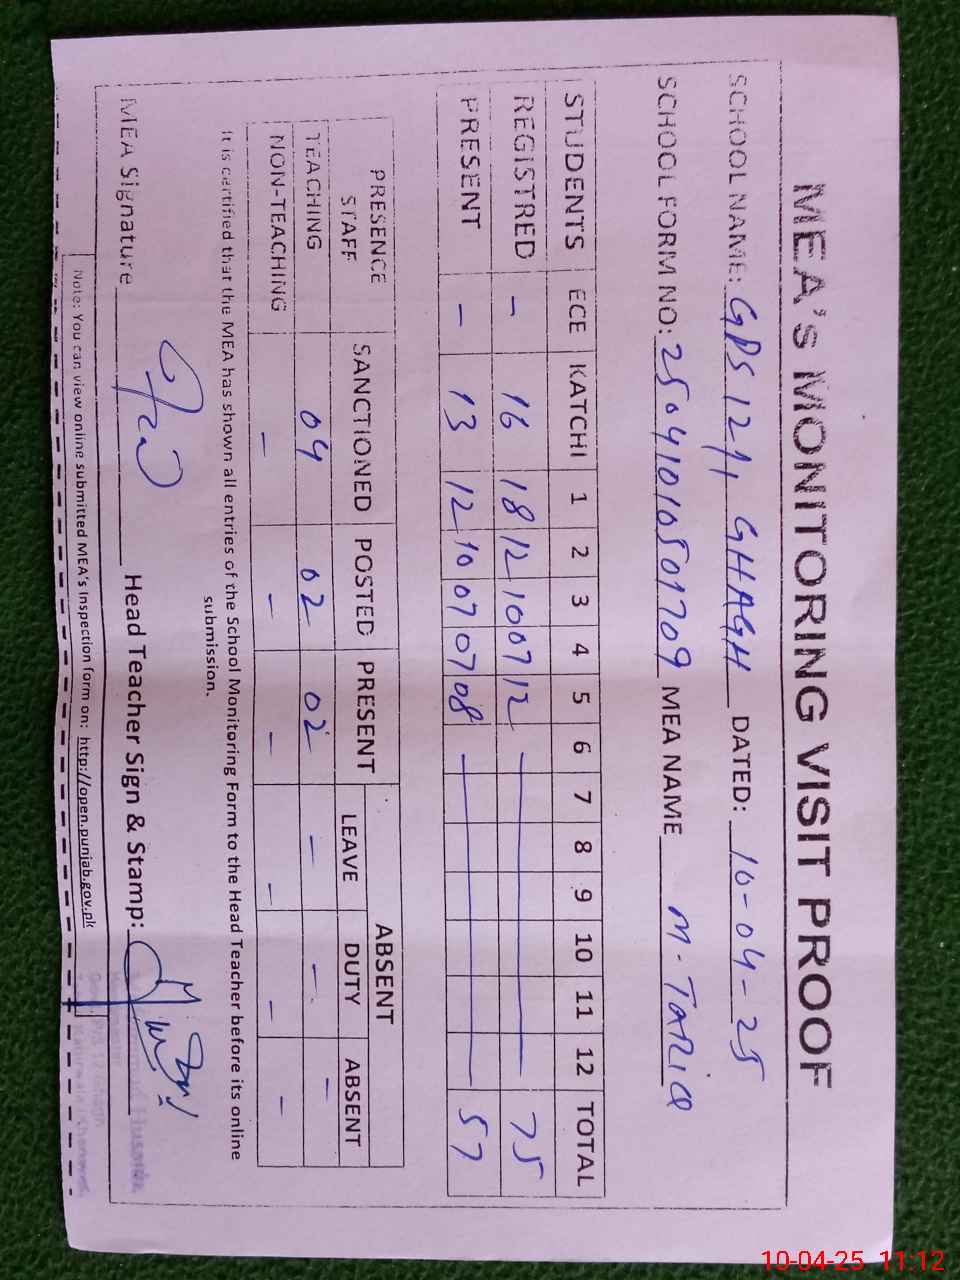 MEA's MONITORING VISIT PROOF
SCHOOL NAME: GPS 12/1 GHAGH DATED: 10-04-25
SCHOOL FORM NO: 25041010501709 MEA NAME M. TARIQ
STUDENTS ECE KATCHI 1 2 3 4 5 6 7 8 9 10 11 12 TOTAL
REGISTRED - 16 18 12 10 07 12 — 75
PRESENT - 13 12 10 07 07 08 — 57
PRESENCE STAFF SANCTIONED POSTED PRESENT ABSENT
LEAVE DUTY ABSENT
TEACHING 04 02 02 - - -
NON-TEACHING - - - - - -
It is certified that the MEA has shown all entries of the School Monitoring Form to the Head Teacher before its online
submission.
MEA Signature Head Teacher Sign & Stamp:
Note: You can view online submitted MEA's Inspection form on: http://open.punjab.gov.pk
10-04-25 11:12